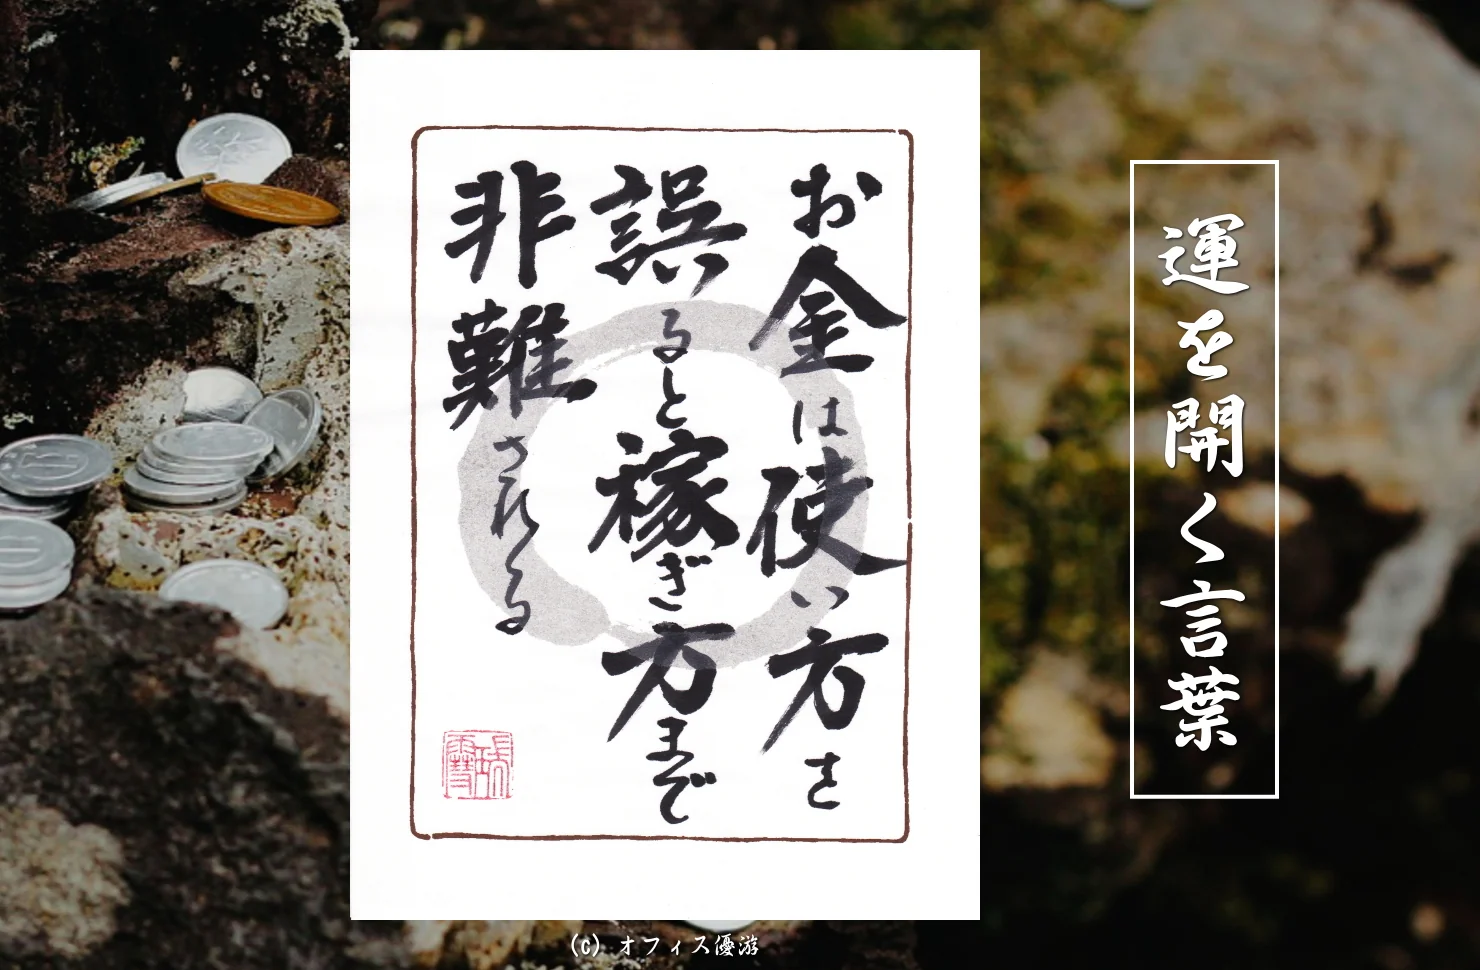 お金は使い方を
誤ると稼ぎ方まで
非難される
運を開く言葉
(c) オフィス優游